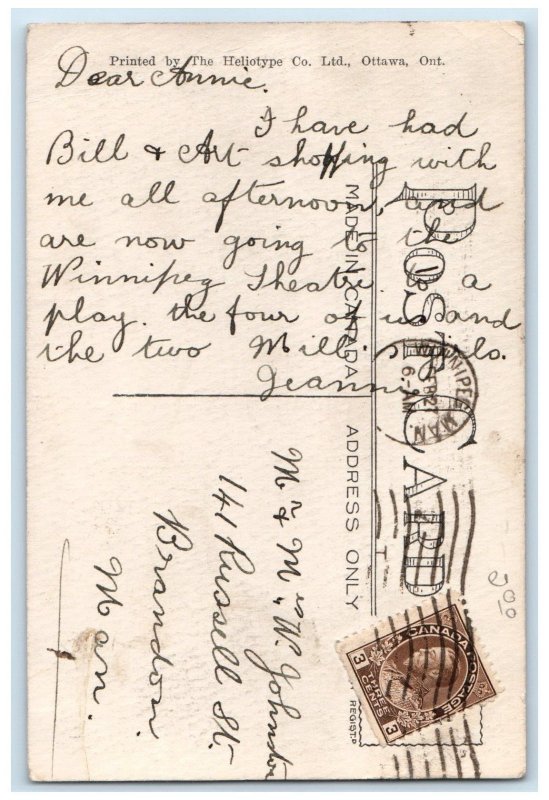 Printed by The Heliotype Co. Ltd., Ottawa, Ont.
Dear Annie.
I have had
Bill & Art shopping with
me all afternoon, and
are now going to the
Winnipeg Theatre to a
play. the four of us and
the two Mills
Jeannie
POST CARD
MADE IN CANADA
ADDRESS ONLY
WINNIPEG
MAN.
6-AM
Mr & Mrs W. Johnston
141 Russell St.
Brandon.
Man.
CANADA POSTAGE
3 THREE CENTS 3
REGIST.D